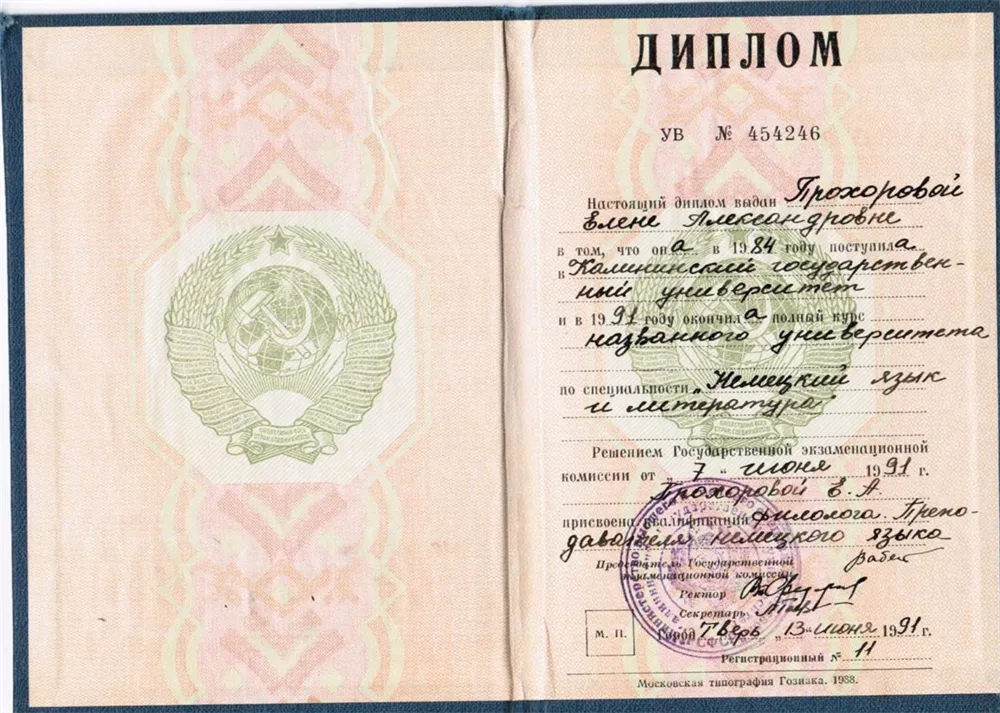 ДИПЛОМ
УВ № 454246
Настоящий диплом выдан Прохоровой
Елене Александровне
в том, что она в 1984 году поступила
в Калининский государствен-
ный университет
и в 1991 году окончила полный курс
названного университета
по специальности „Немецкий язык
и литература"
Решением Государственной экзаменационной
комиссии от „ 7 " июня 1991 г.
Прохоровой Е. А.
присвоена квалификация филолога. Препо-
давателя немецкого языка
Председатель Государственной
экзаменационной комиссии
Ректор
Секретарь
М. П.
Город Тверь „ 13 " июня 1991 г.
Регистрационный № 11
Московская типография Гознака. 1988.